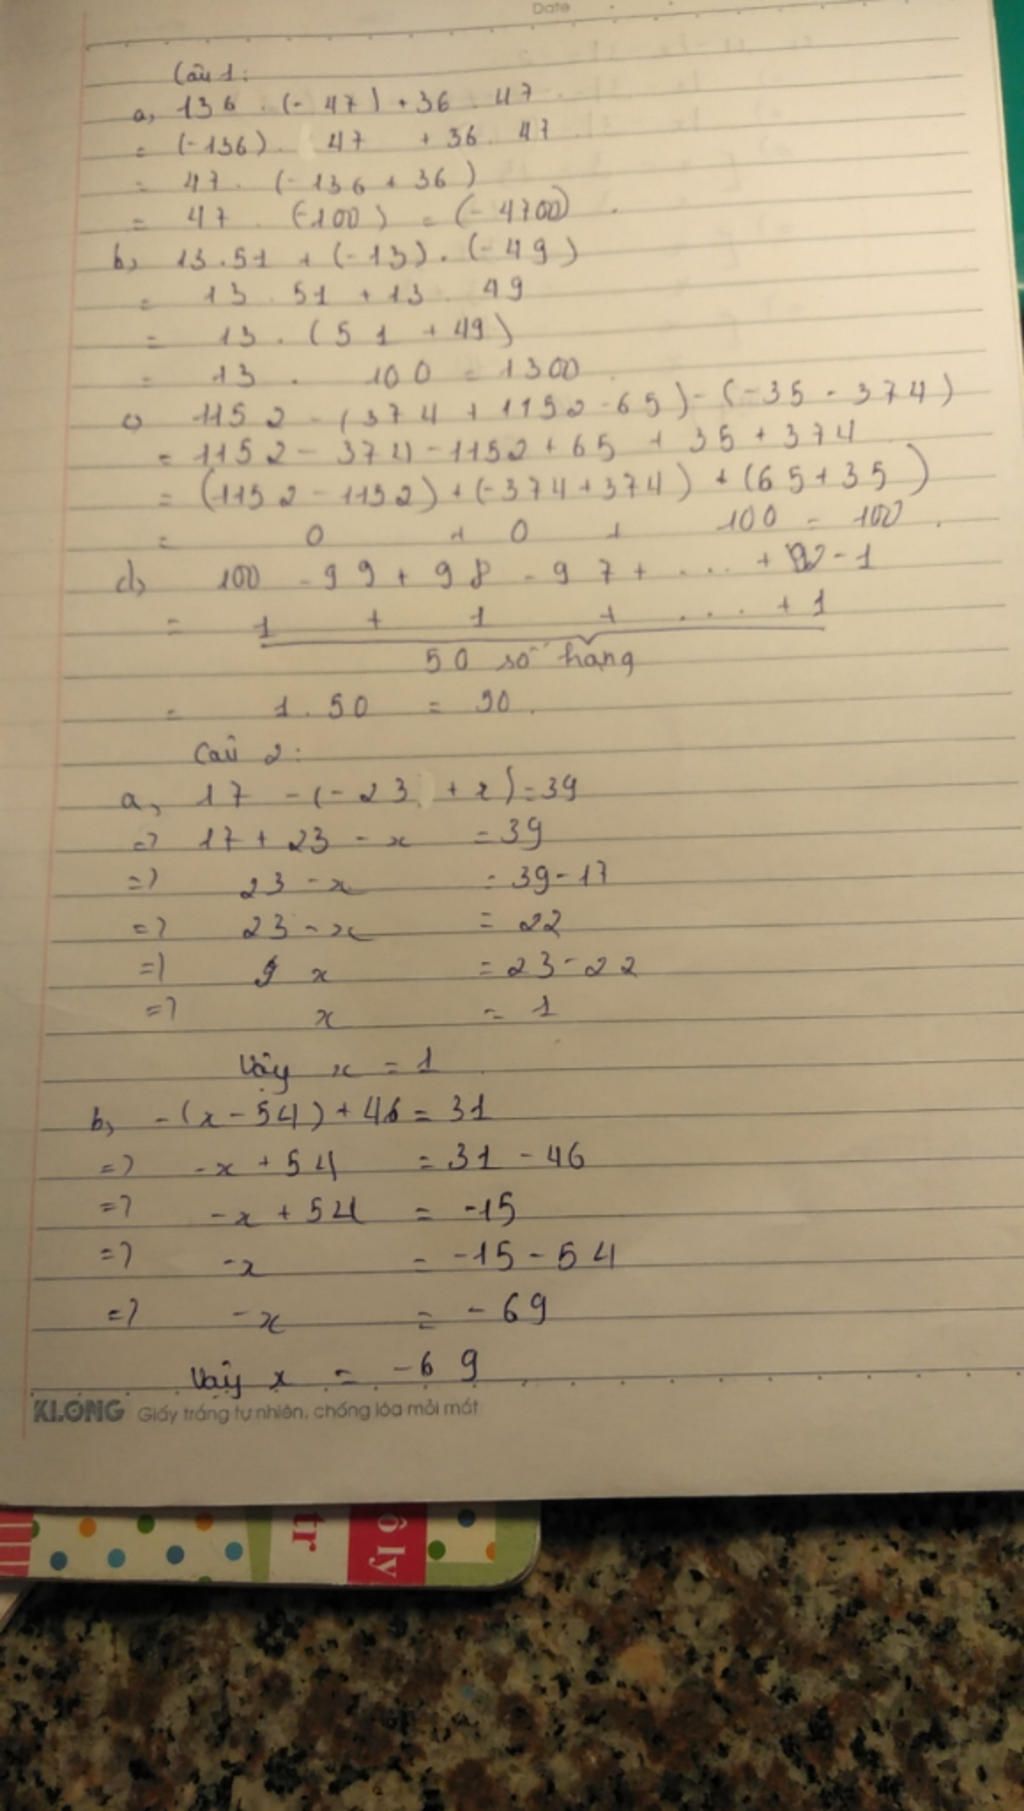 Date
Câu 1:
a, 136 . (- 47) + 36 . 47
= (-136) . 47 + 36 . 47
= 47 . (-136 + 36)
= 47 . (-100) = (-4700) .
b, 13.51 + (-13) . (-49)
= 13 . 51 + 13 . 49
= 13 . (51 + 49)
= 13 . 100 = 1300
c, 1152 - (374 + 1152 - 65) - (-35 - 374)
= 1152 - 374 - 1152 + 65 + 35 + 374
= (1152 - 1152) + (-374 + 374) + (65 + 35)
= 0 + 0 + 100 = 100 .
d, 100 - 99 + 98 - 97 + .... + 2 - 1
= 1 + 1 + .... + 1
50 số hạng
= 1 . 50 = 50 .
Câu 2:
a, 17 - (-23 + x) = 39
=> 17 + 23 - x = 39
=> 23 - x = 39 - 17
=> 23 - x = 22
=> x = 23 - 22
=> x = 1
Vậy x = 1
b, -(x - 54) + 46 = 31
=> -x + 54 = 31 - 46
=> -x + 54 = -15
=> -x = -15 - 54
=> -x = - 69
Vậy x = -69
KLONG Giấy trắng tự nhiên, chống lóa mỏi mắt
ô ly
tr